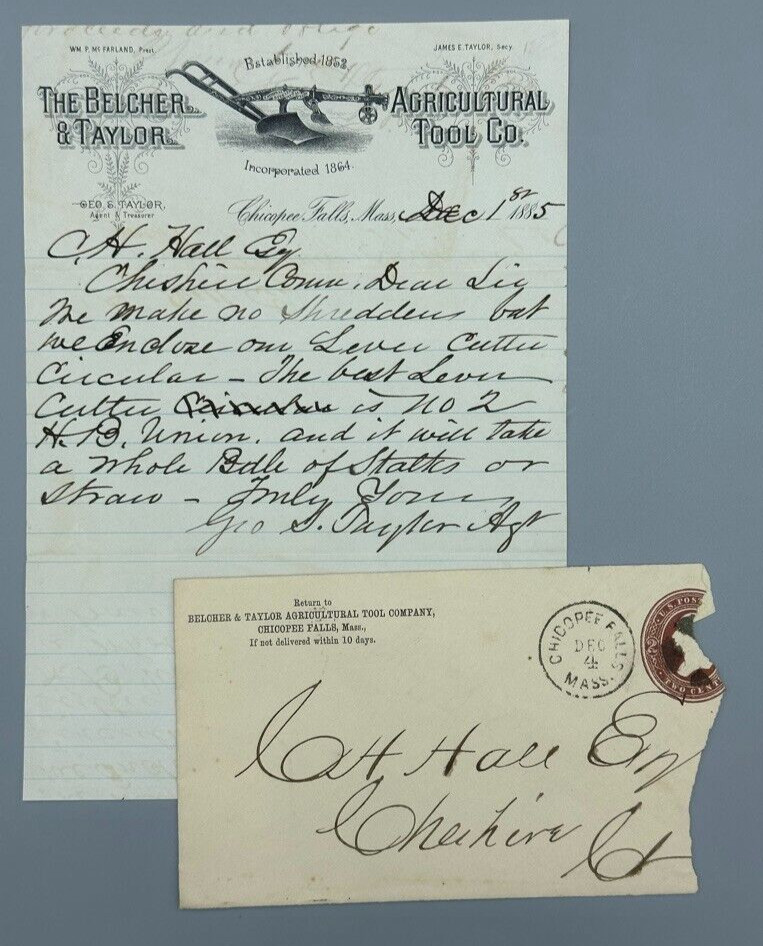 WM. P. McFARLAND, Prest.
JAMES E. TAYLOR, Secy.
Established 1852
THE BELCHER
& TAYLOR
AGRICULTURAL
TOOL CO.
Incorporated 1864.
GEO. S. TAYLOR,
Agent & Treasurer
Chicopee Falls, Mass, Dec 1st 1885
C. H. Hall Esq
Cheshire Conn. Dear Sir
We make no Shredders but
we Enclose our Lever Cutter
Circular – The best Lever
Cutter Circular is No 2
H. B. Union. and it will take
a whole Bdle of Stalks or
Straw – Truly Yours
Geo S. Taylor Agt
Return to
BELCHER & TAYLOR AGRICULTURAL TOOL COMPANY,
CHICOPEE FALLS, Mass.,
If not delivered within 10 days.
CHICOPEE FALLS
DEC
4
MASS.
U.S. POS
2
TWO CENT
C H Hall Esq
Cheshire Ct